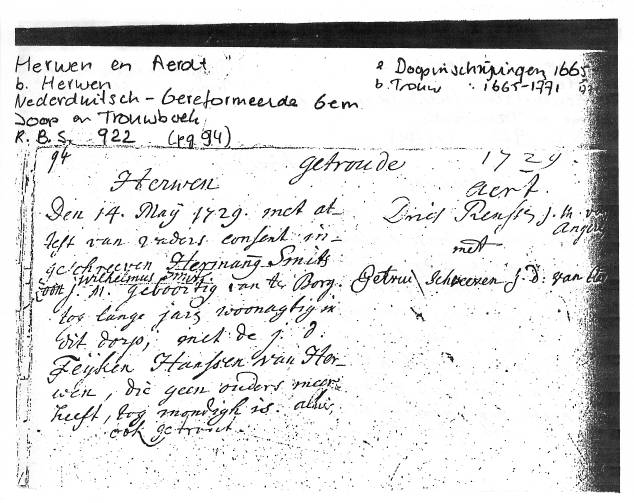 Herwen en Aerdt
b. Herwen
Nederduitsch - Gereformeerde Gem
Doop en Trouwboek
R.B.S. 922 (pg 94)
a Doopinschrijvingen 1665
b. Trouw " 1665-1771
94 getroude 1729.
Herwen
Den 14. Maÿ 1729. met at-
test van vaders consent in-
geschreeven Hermang Smits
soon wilhelmus Smits
J. M. geboortig van ter Borg.
tog lange jaer woonagtig in
dit dorp, met de J. D.
Feÿken Hanssen van Her-
wen, die geen ouders meer
heeft, tog mondigh is. alhier
ook getrout.
Aert.
Dries Rensse J. M. van
Anger
met
Getrui Schreeven J. D. van